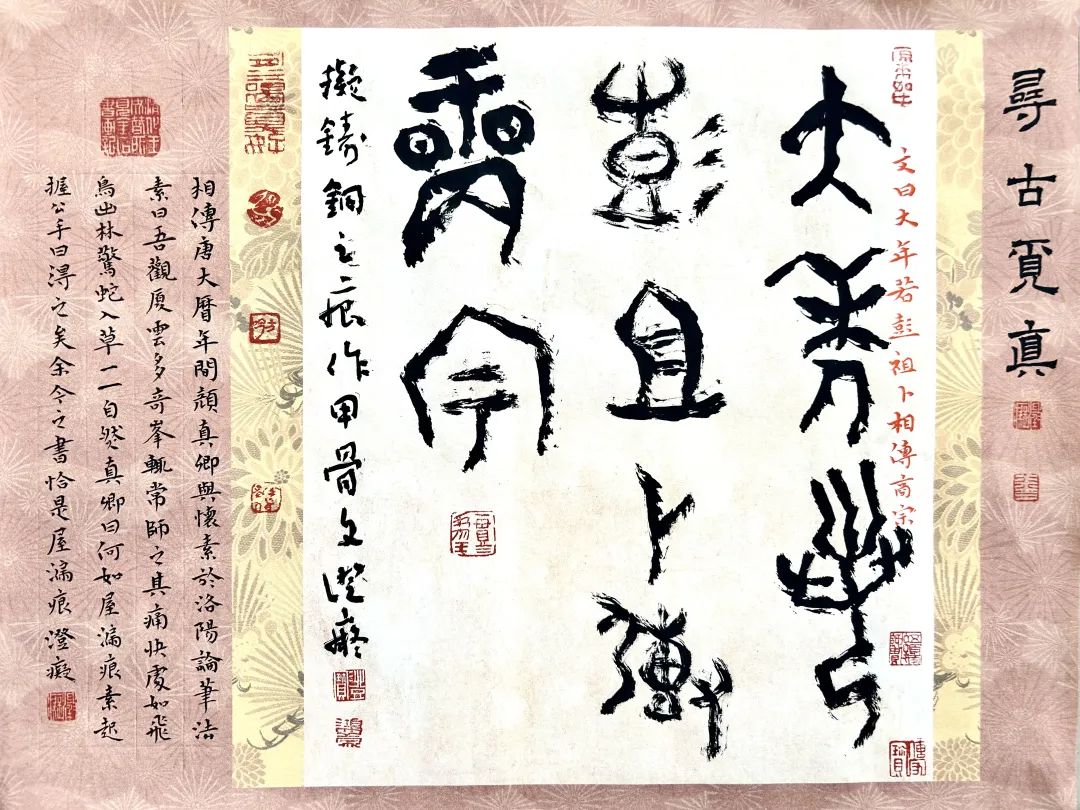 尋古覓真
文曰大年若彭祖卜相傳商宗
大年若
彭且卜傳
商
擬鑄銅之痕作甲骨文澄癡
相傳唐大曆年間顏真卿與懷素於洛陽論筆法
素曰吾觀夏雲多奇峯輒常師之其痛快處如飛
鳥出林驚蛇入草一一自然真卿曰何如屋漏痕素起
握公手曰得之矣余今之書恰是屋漏痕澄癡